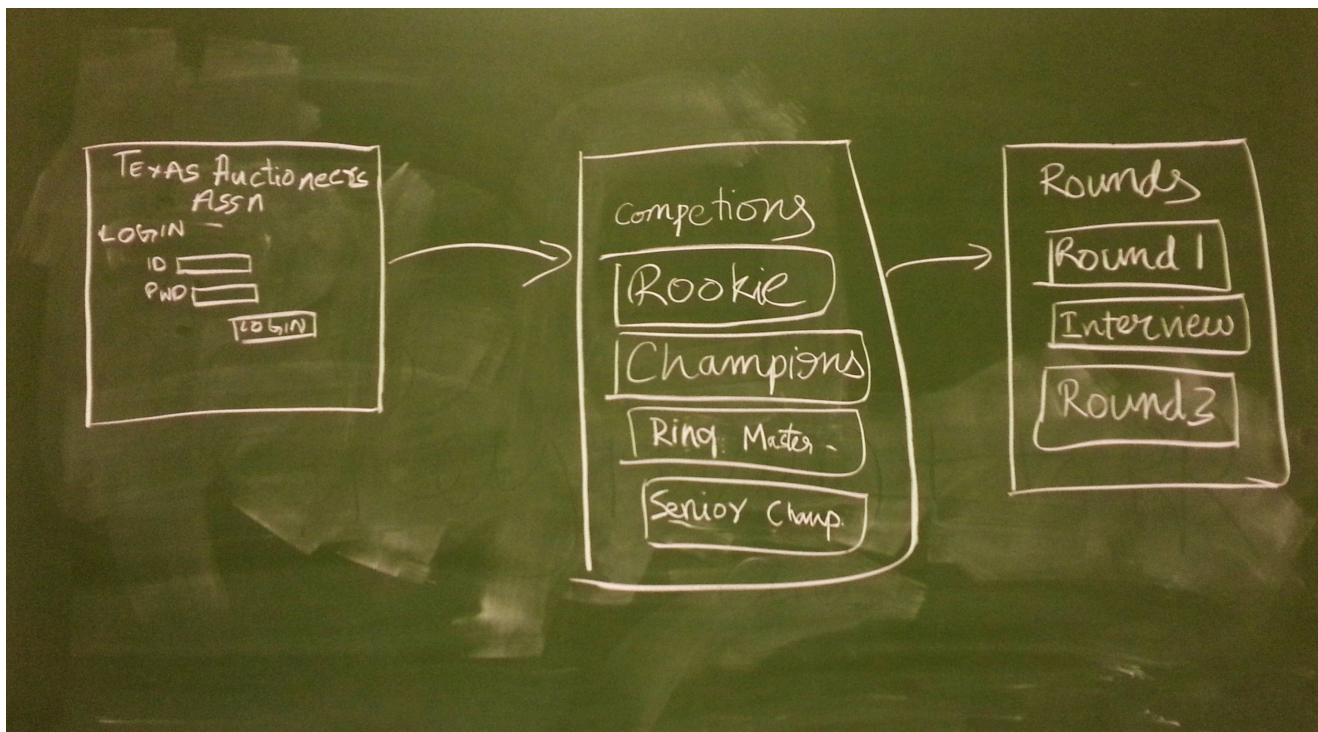 TEXAS Auctioneers
ASSn
LOGIN
ID
PWD
LOGIN
Competions
Rookie
Champions
Ring Master
Senior Champ.
Rounds
Round 1
Interview
Round 3